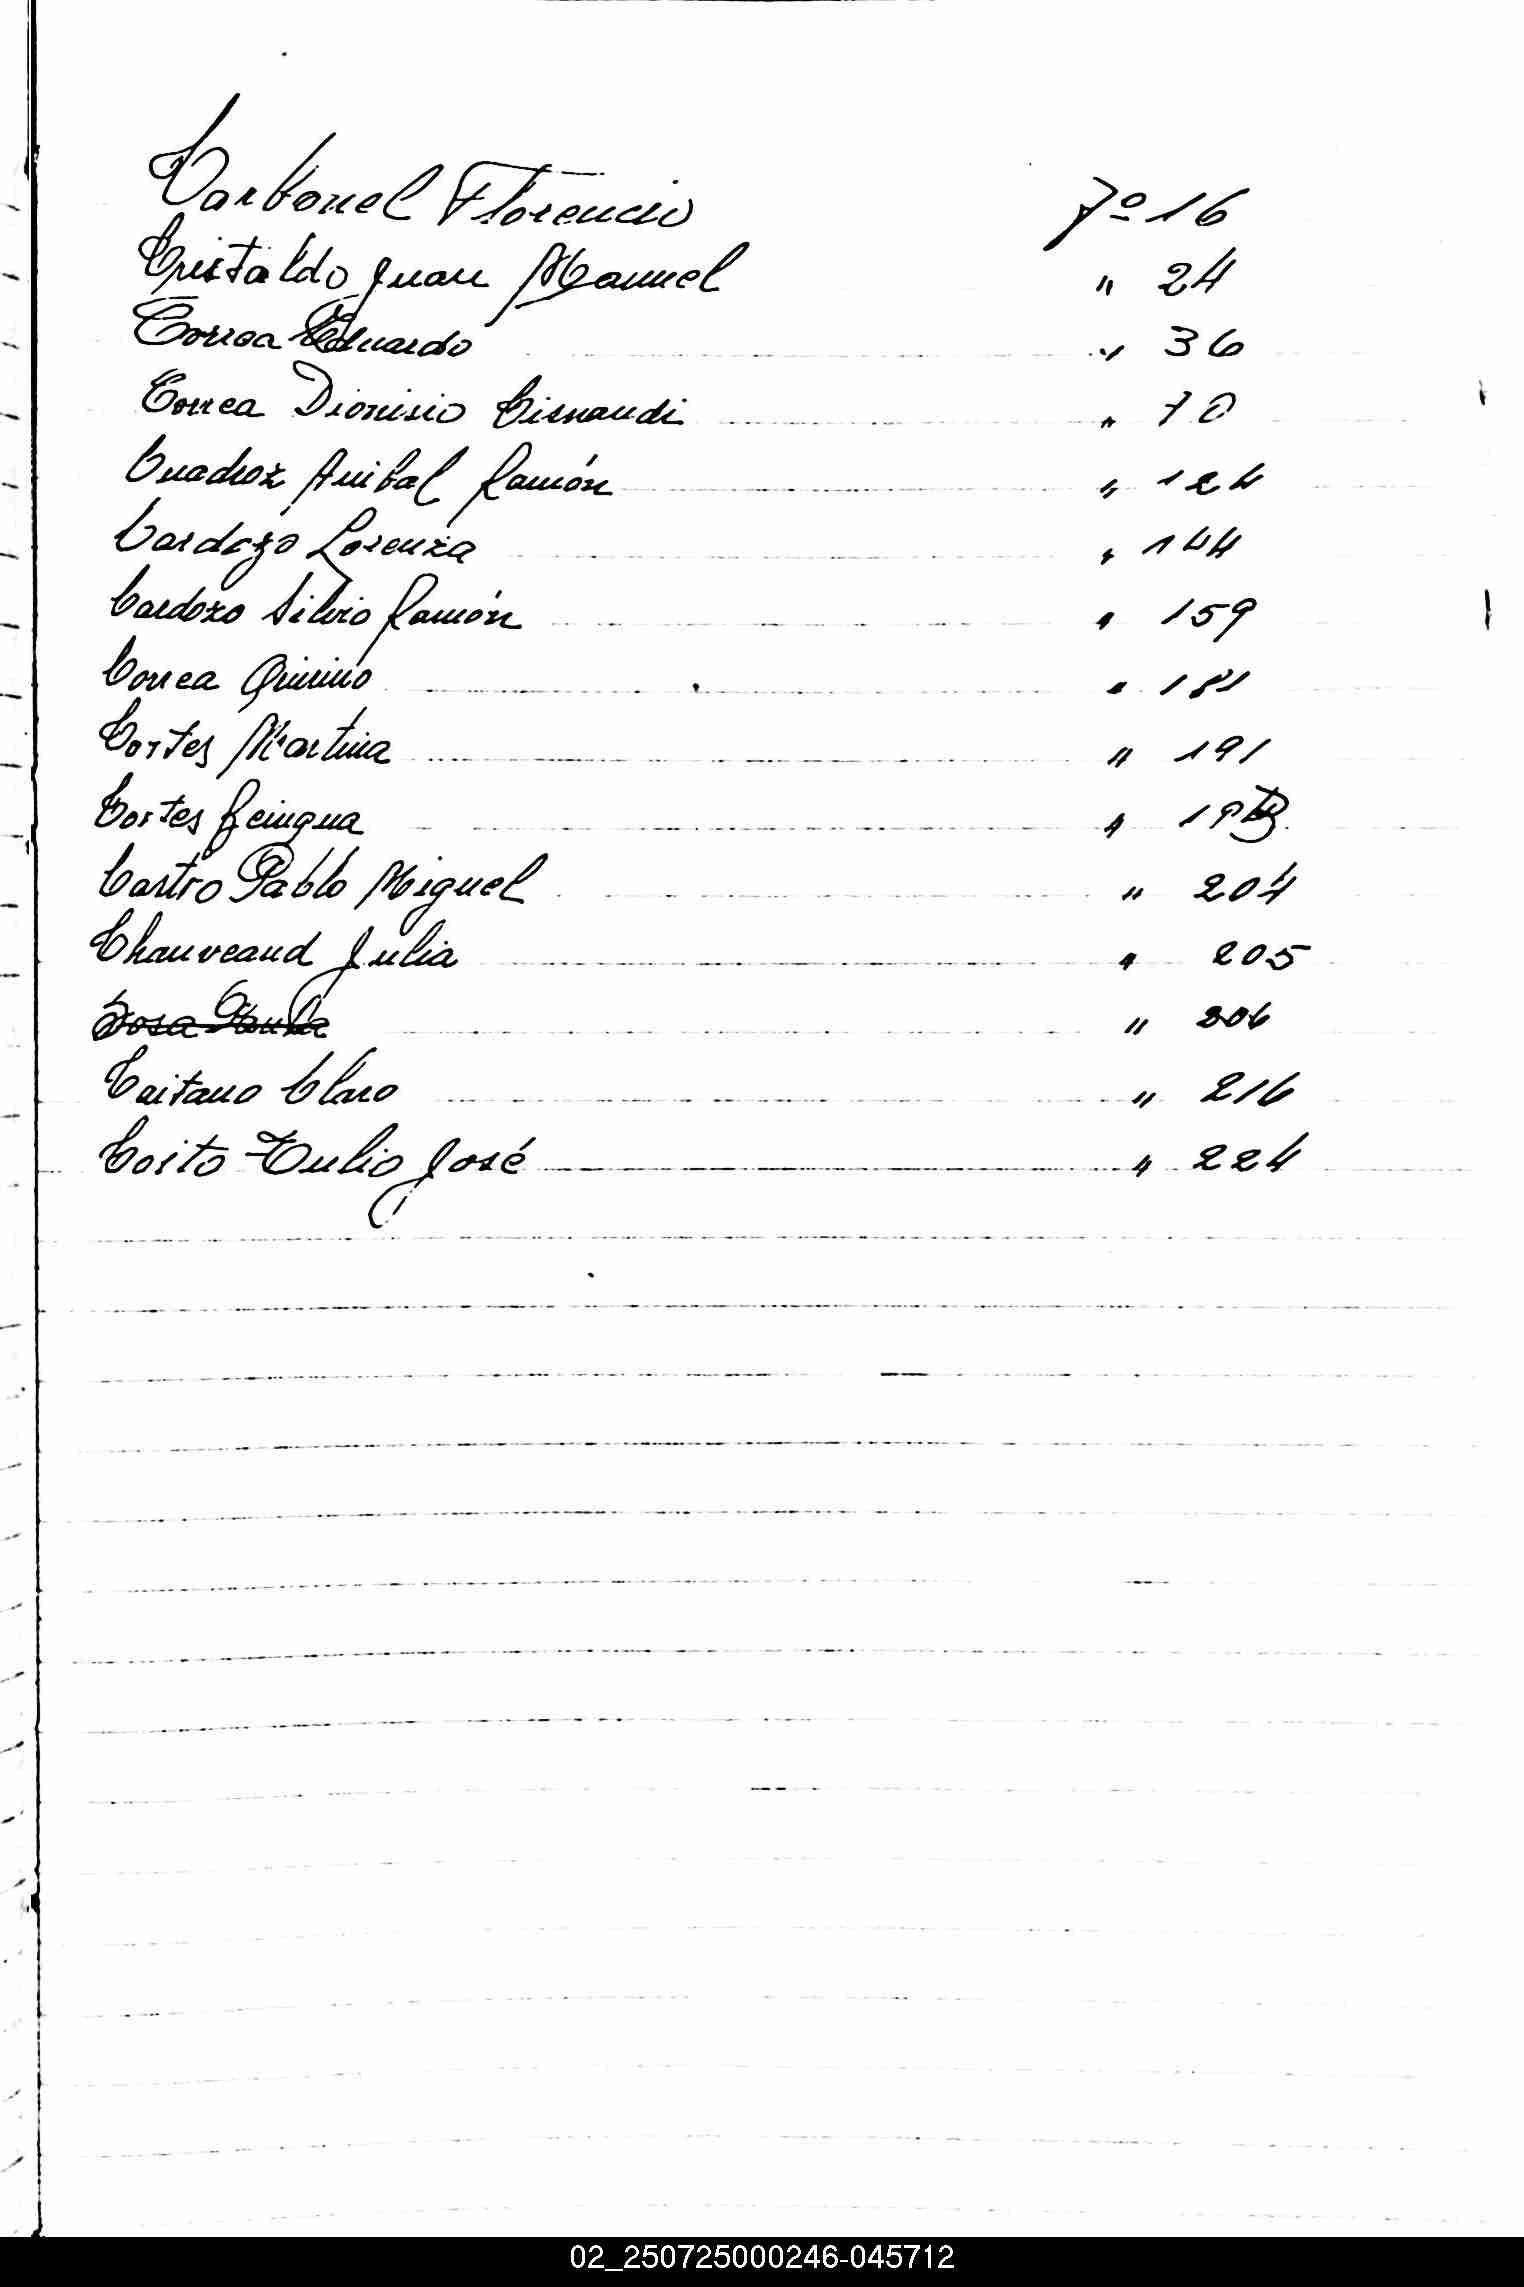 Carbonel Florencio Fº 16
Cristaldo Juan Manuel " 24
Correa Eduardo " 36
Correa Dionisio Cisnandi " 70
Cuadroz Anibal Ramón " 124
Cardozo Lorenza " 144
Cardozo Silvio Ramón " 159
Correa Quirino " 181
Cortes Martina " 191
Cortes " 193
Castro Pablo Miguel " 204
Chauveaud Julia " 205
" 206
Caitano Claro " 216
Coito Tulio José " 224
02_250725000246-045712